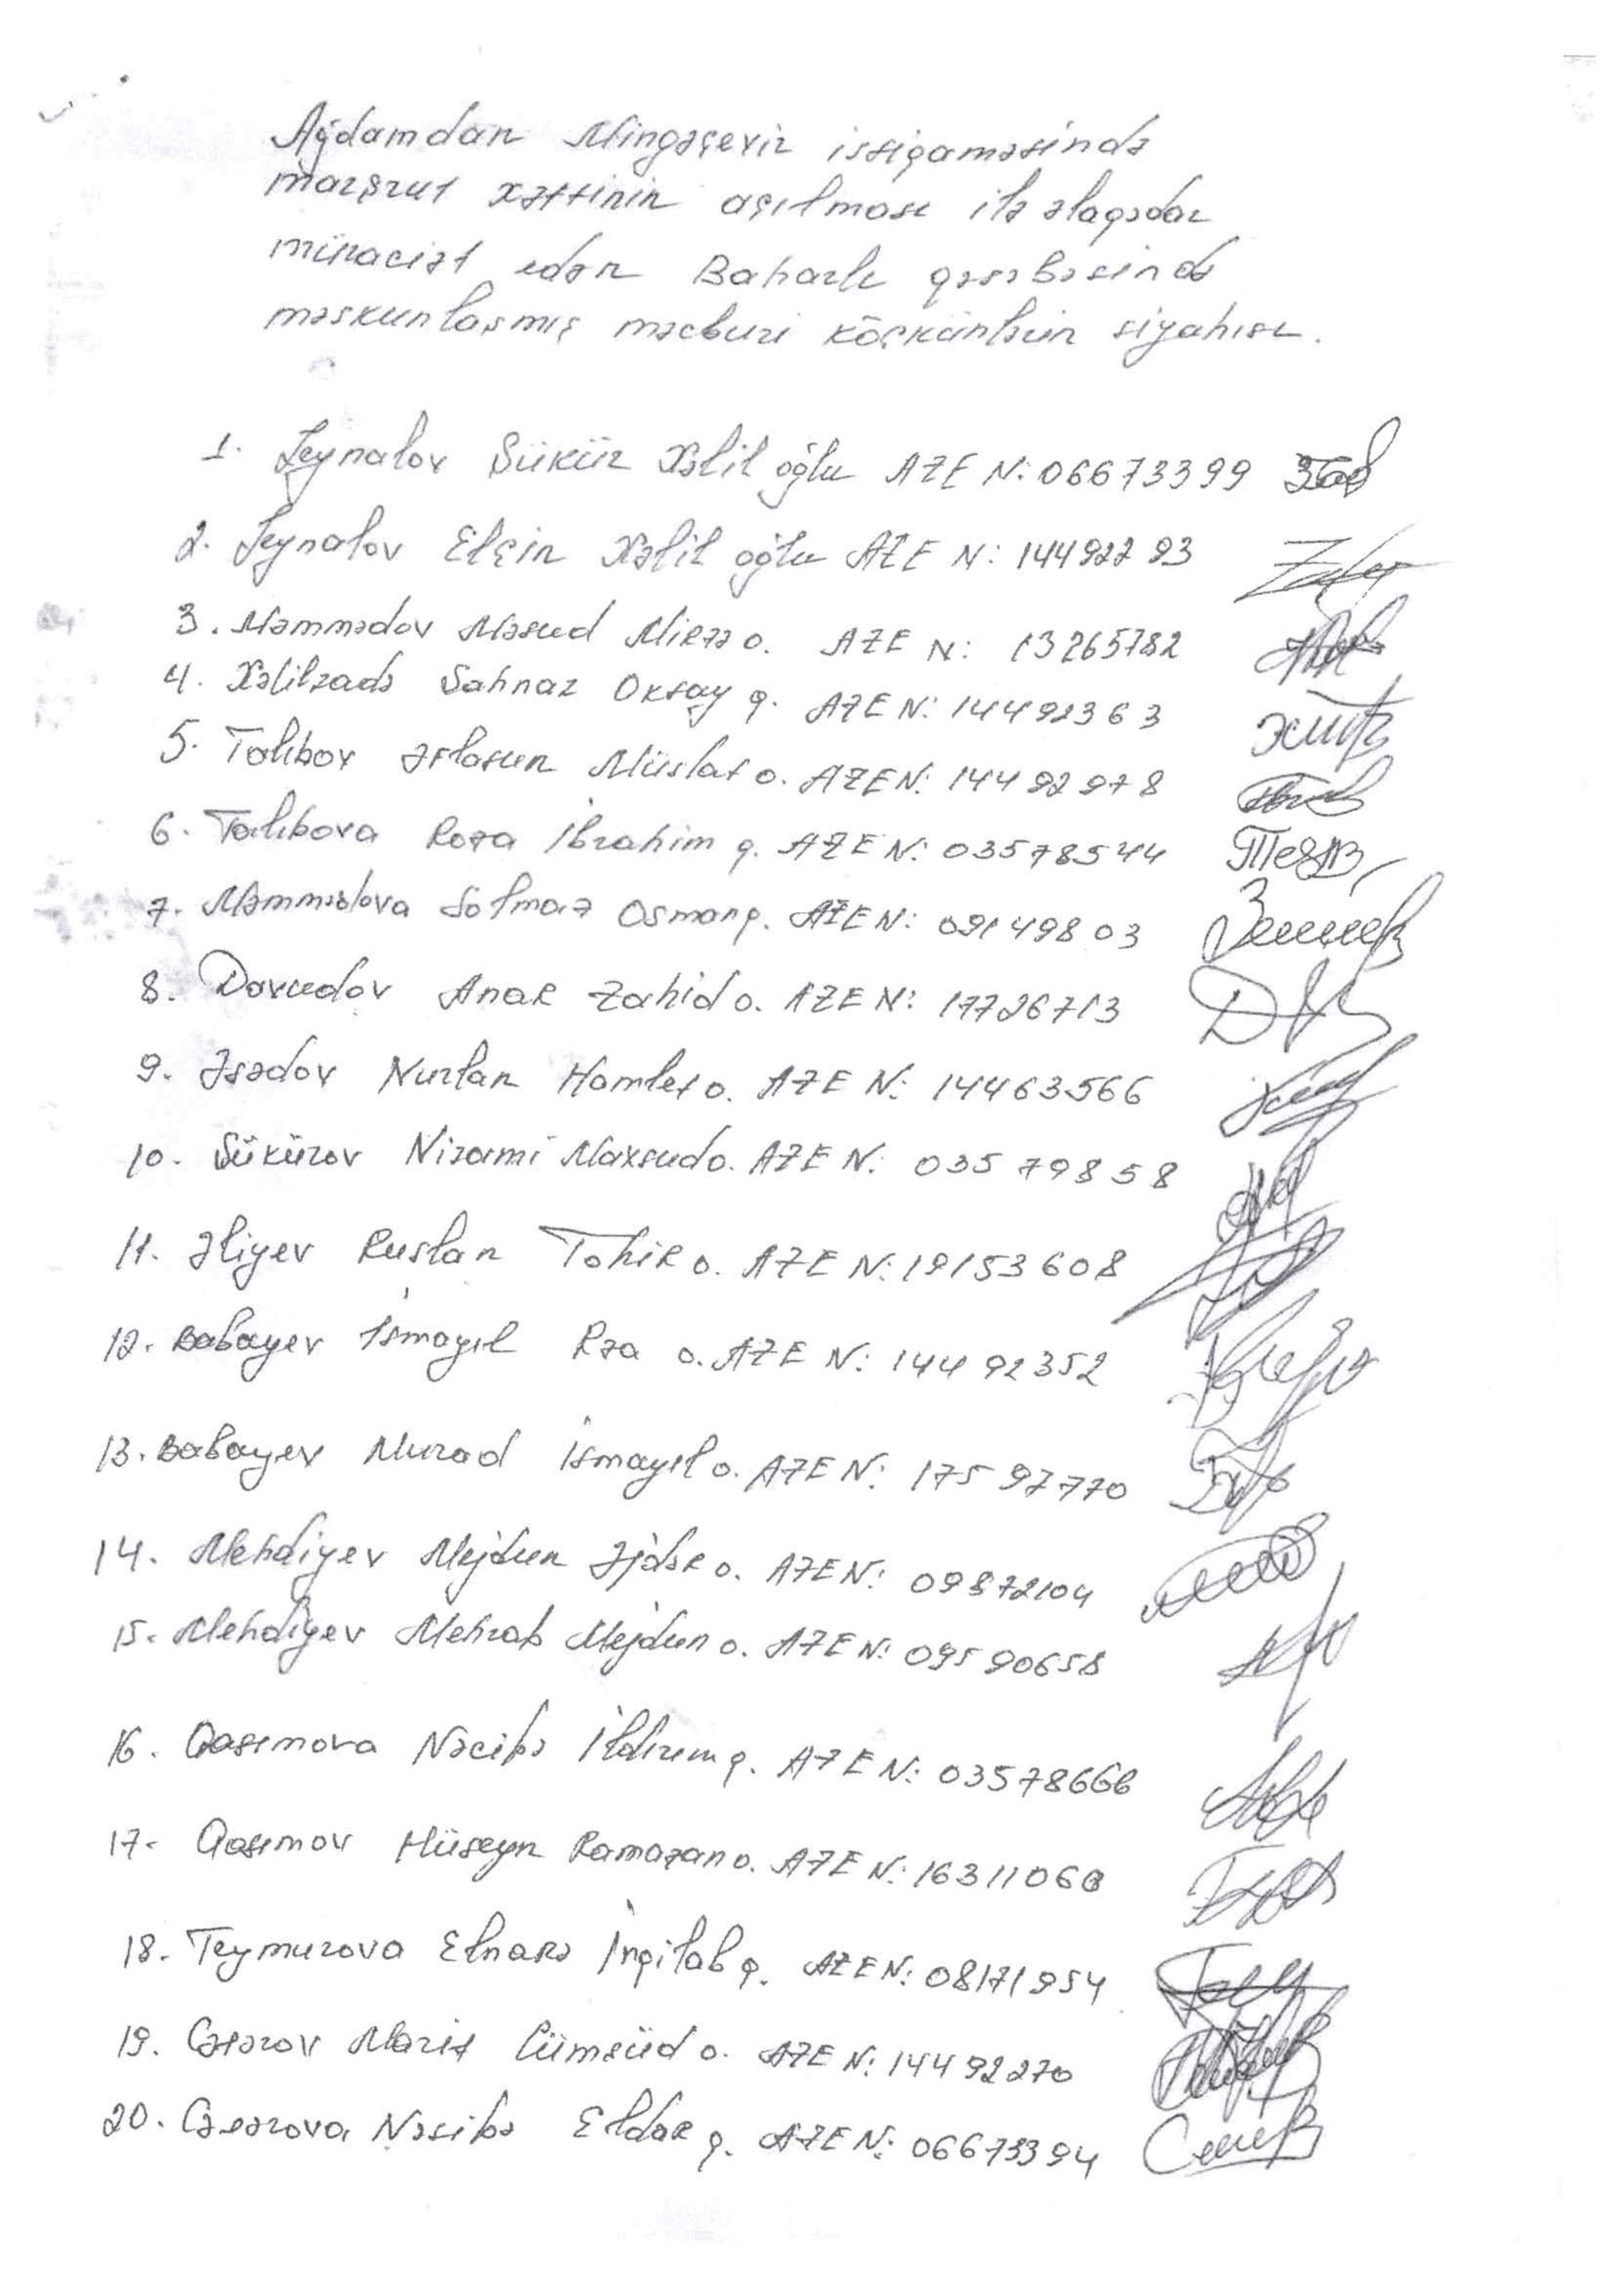 Ağdamdan Mingəçevir istiqaməsində
marşrut xəttinin açılması ilə əlaqədar
müraciət edən Baharlı qəsəbəsində
məskunlaşmış məcburi köçkünlərin siyahısı.
1. Zeynalov Şükür Xəlil oğlu AZE N: 06673399
2. Zeynalov Elçin Xəlil oğlu AZE N: 14492293
3. Məmmədov Məsud Mirzə o. AZE N: 13265782
4. Xəlilzadə Şahnaz Oktay q. AZE N: 14492363
5. Talıbov Müslət o. AZE N: 14492978
6. Talıbova Roza İbrahim q. AZE N: 03578544
7. Məmmədova Solmaz Osman q. AZE N: 09149803
8. Davudov Anar Zahid o. AZE N: 17726713
9. Əsədov Nurlan Hamlet o. AZE N: 14463566
10. Şükürov Nizami Maxsud o. AZE N: 03579858
11. Əliyev Ruslan Tahir o. AZE N: 19153608
12. Babayev İsmayıl Rza o. AZE N: 14492352
13. Babayev Murad İsmayıl o. AZE N: 17597770
14. Mehdiyev Mejdun Əjdər o. AZE N: 09872104
15. Mehdiyev Mehrab Mejdun o. AZE N: 09590658
16. Qasımova Nəcibə İldırım q. AZE N: 03578666
17. Qasımov Hüseyn Ramazan o. AZE N: 16311060
18. Teymurova Elnarə İnqilab q. AZE N: 08171954
19. Cəfərov Marif Cümşüd o. AZE N: 14492270
20. Cəfərova Nəsibə Eldar q. AZE N: 06673394